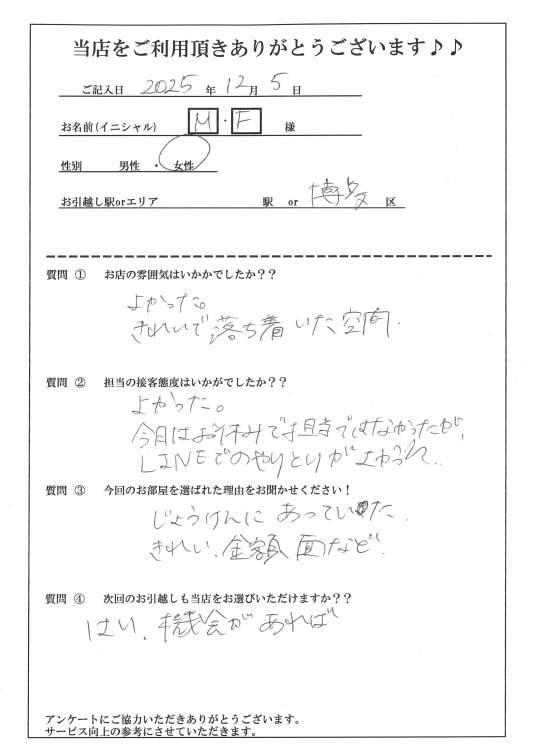 当店をご利用頂きありがとうございます♪♪
ご記入日 2025 年 12 月 5 日
お名前(イニシャル) M ・ F 様
性別 男性 ・ 女性
お引越し駅orエリア 駅 or 博多 区
質問 ① お店の雰囲気はいかかでしたか??
よかった。
きれいで落ち着いた空間.
質問 ② 担当の接客態度はいかがでしたか??
よかった。
今日はお休みで担当ではなかったが、
LINEでのやりとりがよかって..
質問 ③ 今回のお部屋を選ばれた理由をお聞かせください!
じょうけんにあっていた.
きれい、金額面など.
質問 ④ 次回のお引越しも当店をお選びいただけますか??
はい、機会があれば
アンケートにご協力いただきありがとうございます。
サービス向上の参考にさせていただきます。